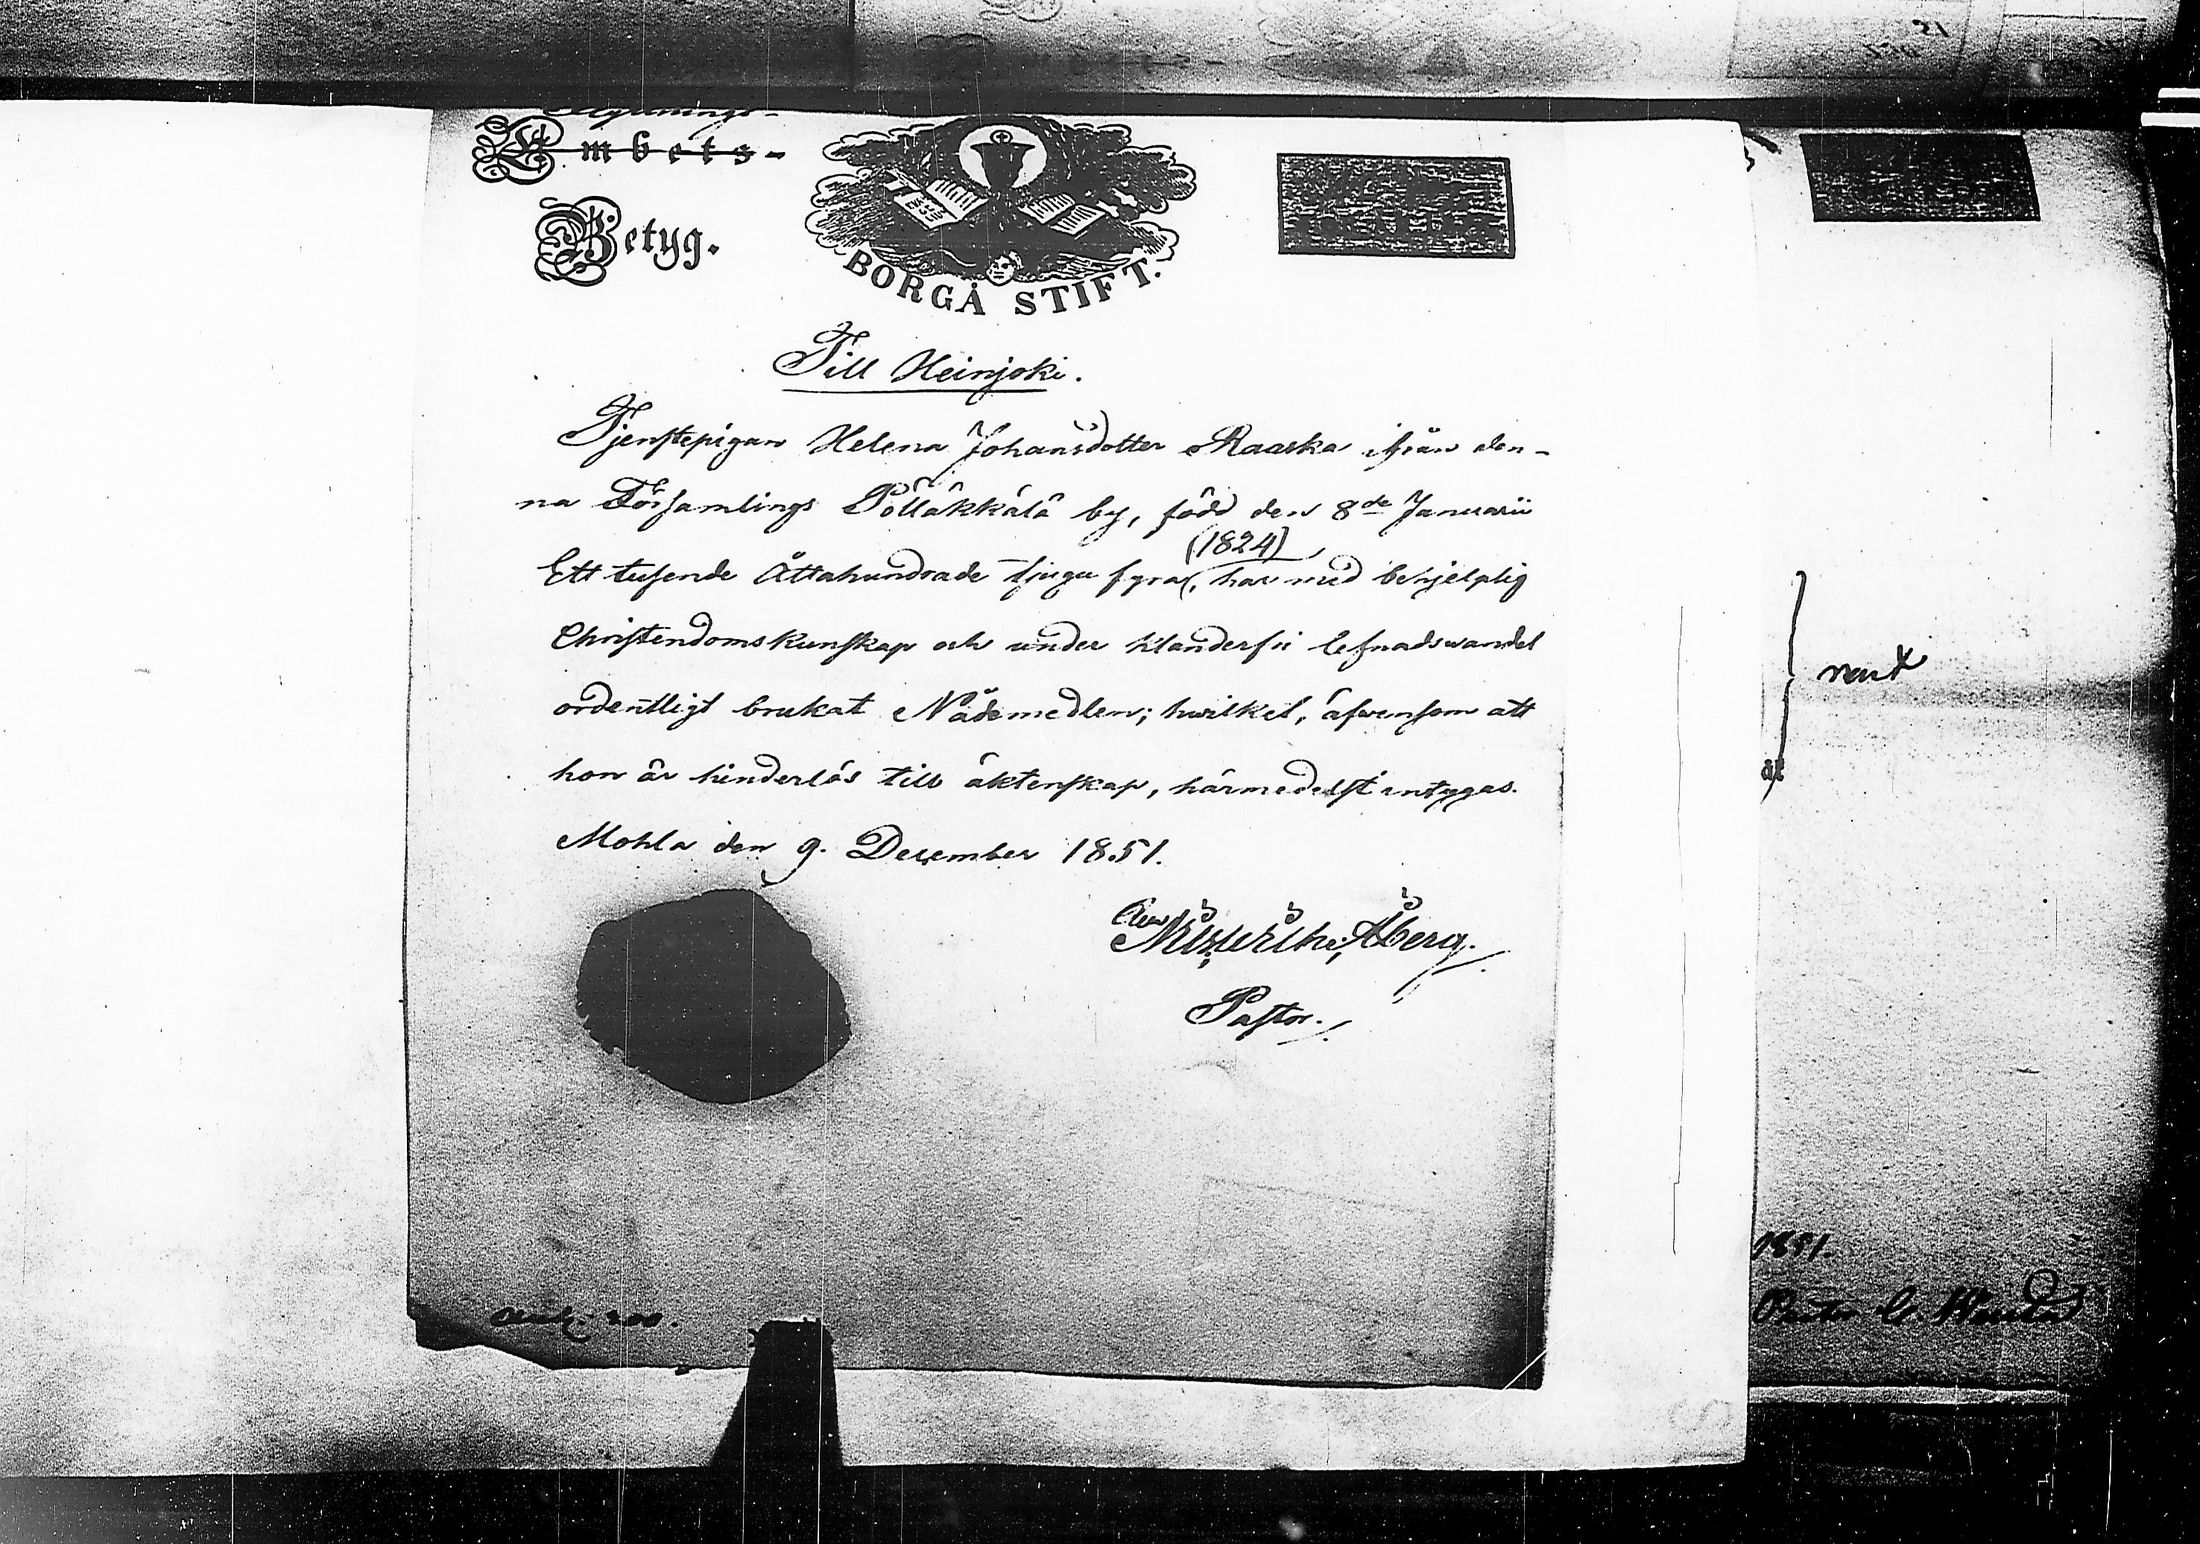 Embets-
Betyg.
BORGÅ STIFT.
Till Heinjoki.
Tjenstepigan Helena Johansdotter Raaska ifrån den-
na Församlings Pölläkkälä by, född den 8de Januarii
(1824)
Ett tusende Åttahundrade tjugu fyra, har med behjelplig
Christendomskunskap och under klanderfri lefnadswandel
ordentligt brukat Nådemedlen; hwilket, äfwensom att
hon är hinderlös till äktenskap, härmedelst intygas.
Mohla den 9. December 1851.
Åberg.
Pastor.
1851.
Pastor